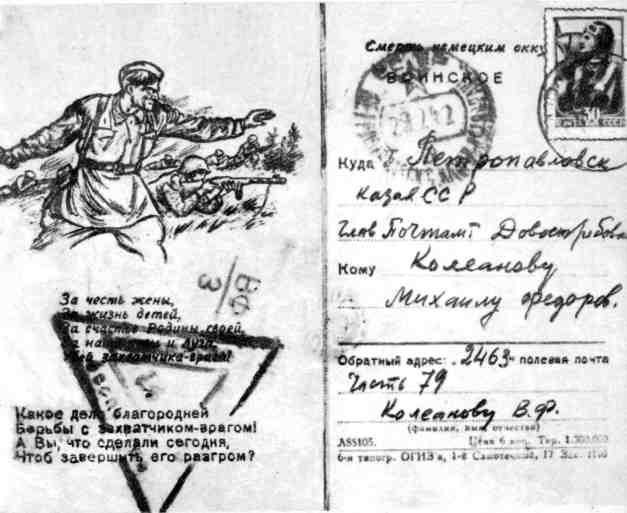 За честь жены,
За жизнь детей,
За счастье Родины своей,
За наши и луга,
Убей захватчика-врага!
Какое дело благородней
Борьбы с захватчиком-врагом!
А Вы, что сделали сегодня,
Чтоб завершить его разгром?
Смерть немецким окку
ВОИНСКОЕ
30
Куда Петропавловск
Казах ССР
глав Почтамт Довостребова
Кому Колеанову
Михаилу Федоров.
Обратный адрес: 2463 полевая почта
Часть 79
Колеанову В.Ф.
(фамилия, имя, отчество)
А88105. Цена 6 коп. Тир. 1.300.000
6-я типогр. ОГИЗа, 1-й Самотечный, 17
ВФ
3